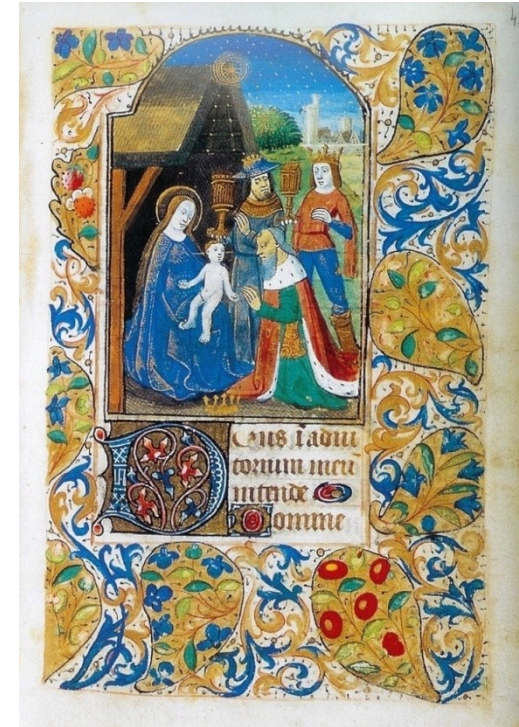 Deus i adiu
torium meu
intende
Domine